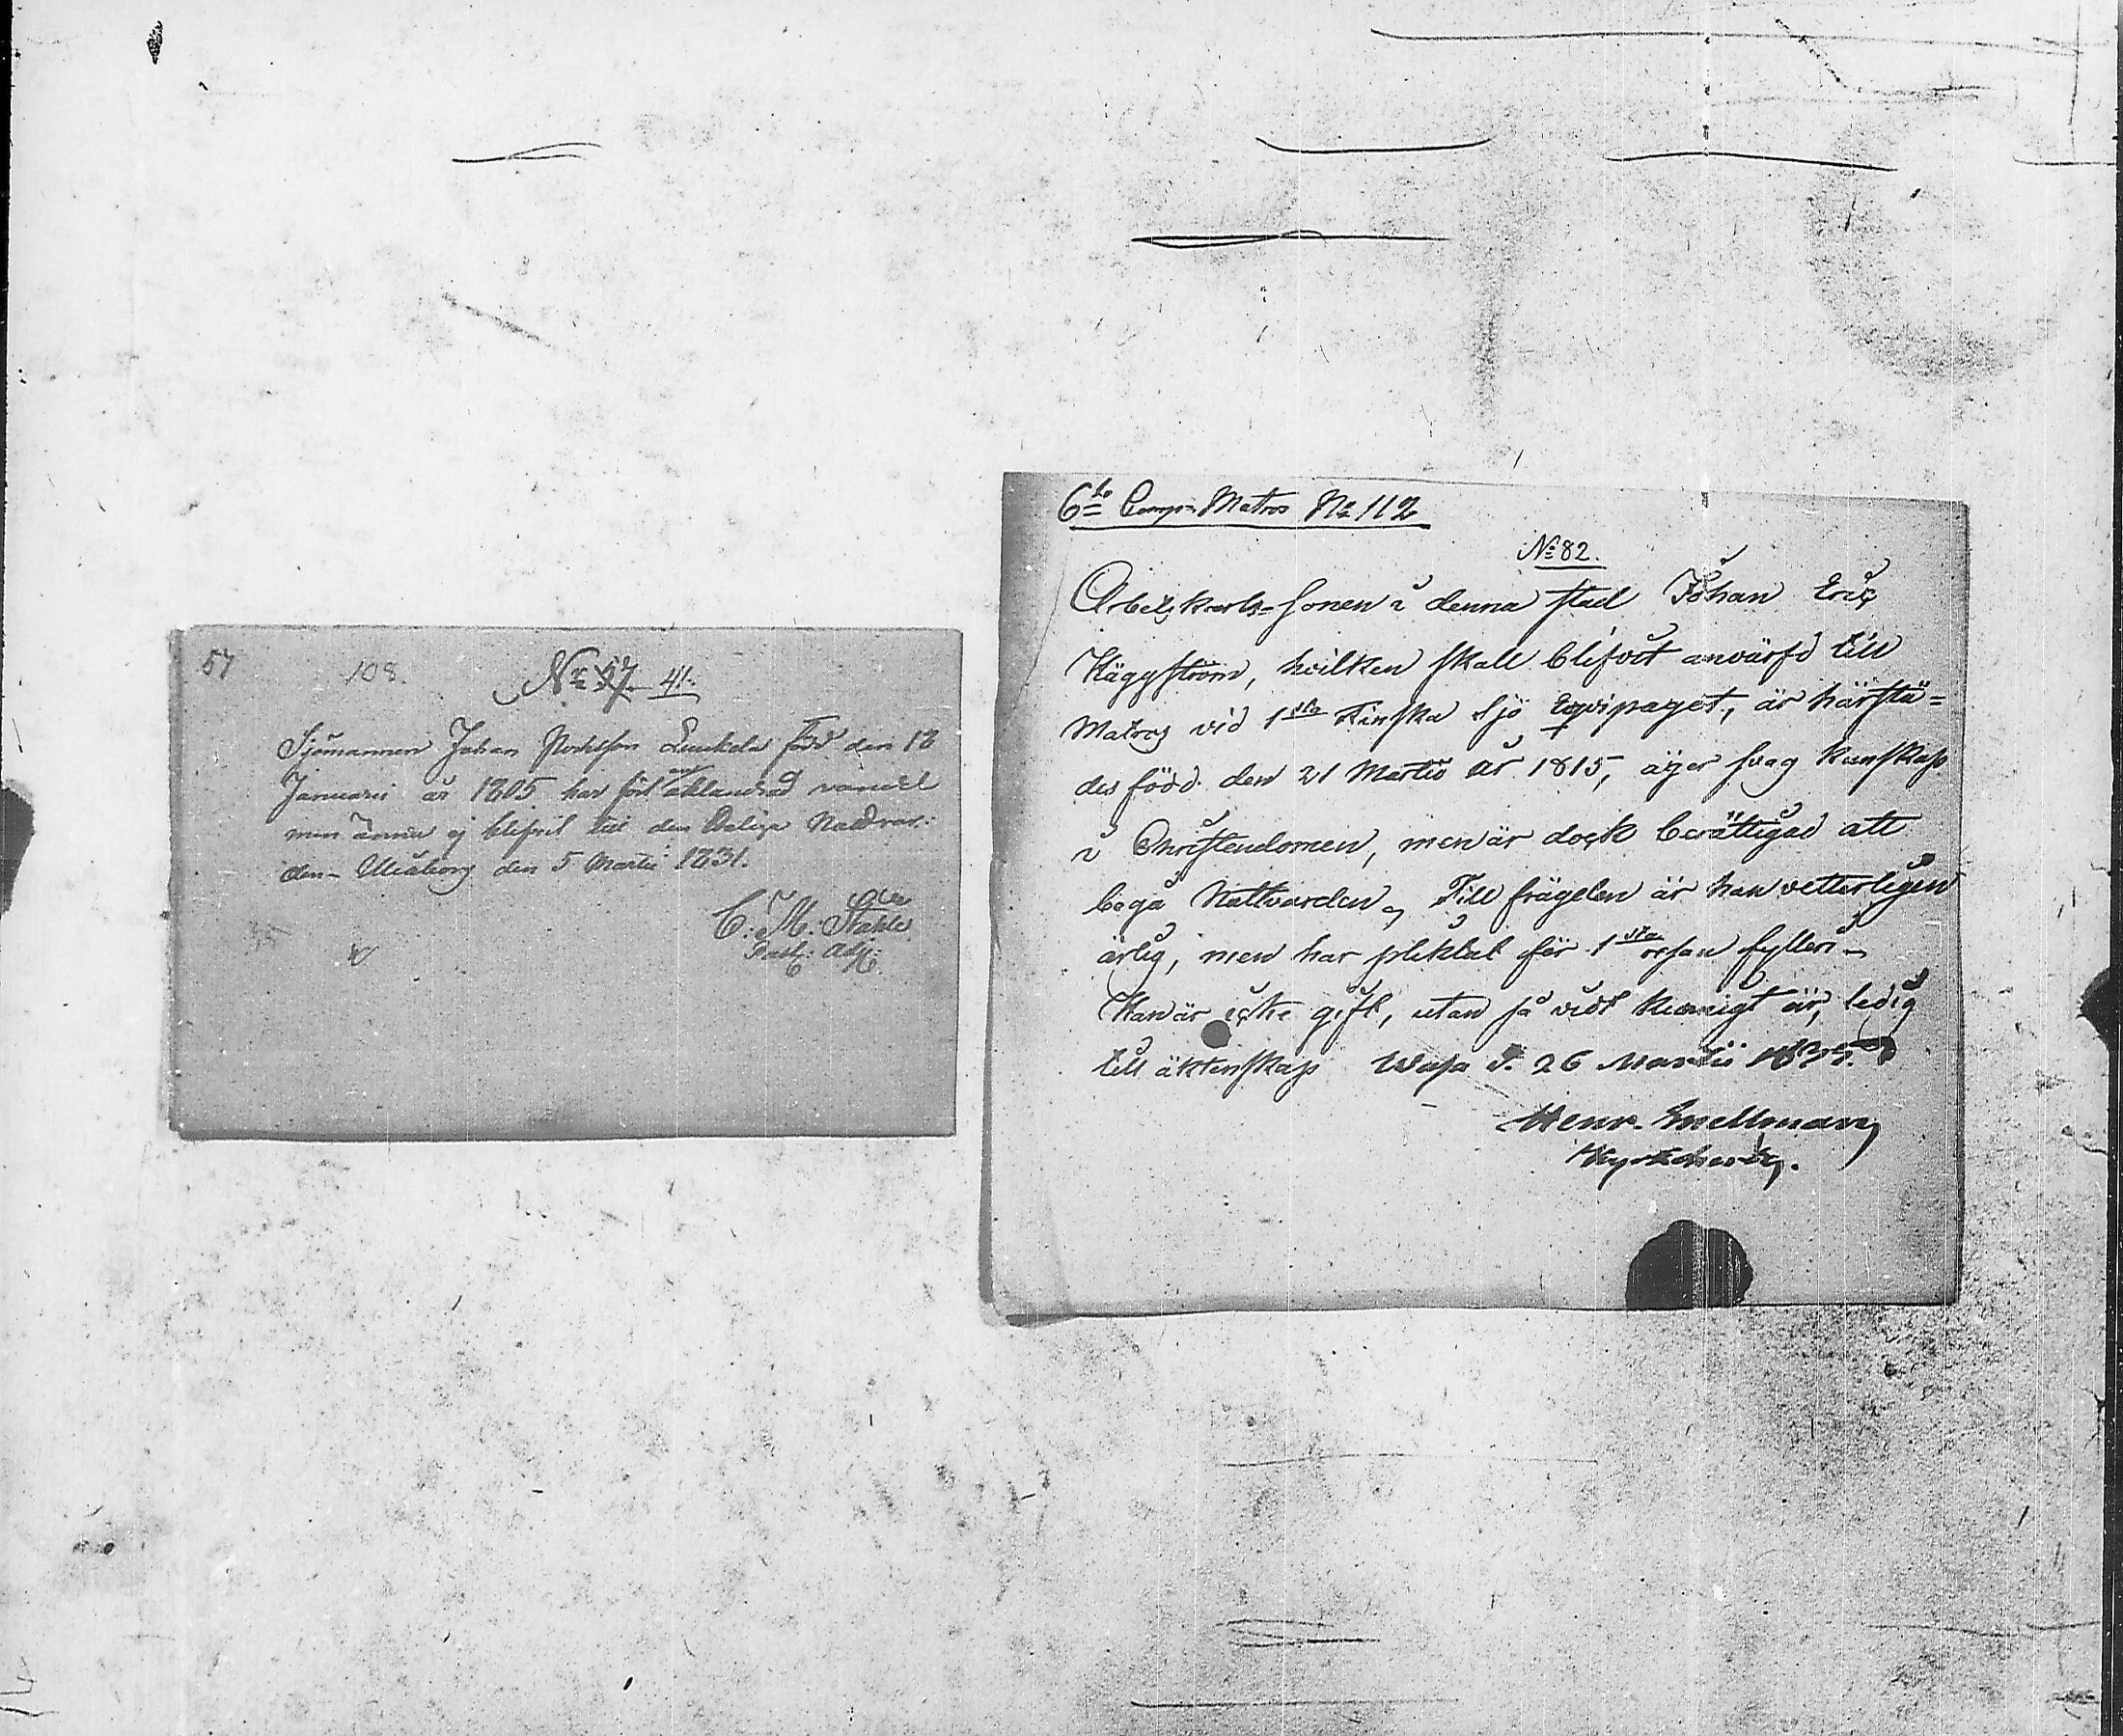 57 108. No 57 41.
Sjömannen Johan Lunkela född den 12
Januarii år 1805 har fört oklandrad vandel
men ännu ej blifvit till den Nattvar:
den – Uleåborg den 5 Martii 1831.
C. M. Ståhle
Past: Adj:
6te Comp. Matros No 112
No 82.
Arbetskarls-Sonen i denna stad Johan Eric
Häggström, hvilken skall blifvit anvärfd till
Matros vid 1sta Finska Sjö Equipaget, är härstä=
des född den 21 Martii år 1815, äger svag kunskap
i Christendomen, men är dock berättigad att
begå Nattvarden, Till frägden är han vetterligen
ärlig, men har pliktat för 1sta resan fylleri –
Han är icke gift, utan så vidt kunnigt är, ledig
till äktenskap Wasa d. 26 Martii 1835.
Henr. Snellman
Kyrkoherde.